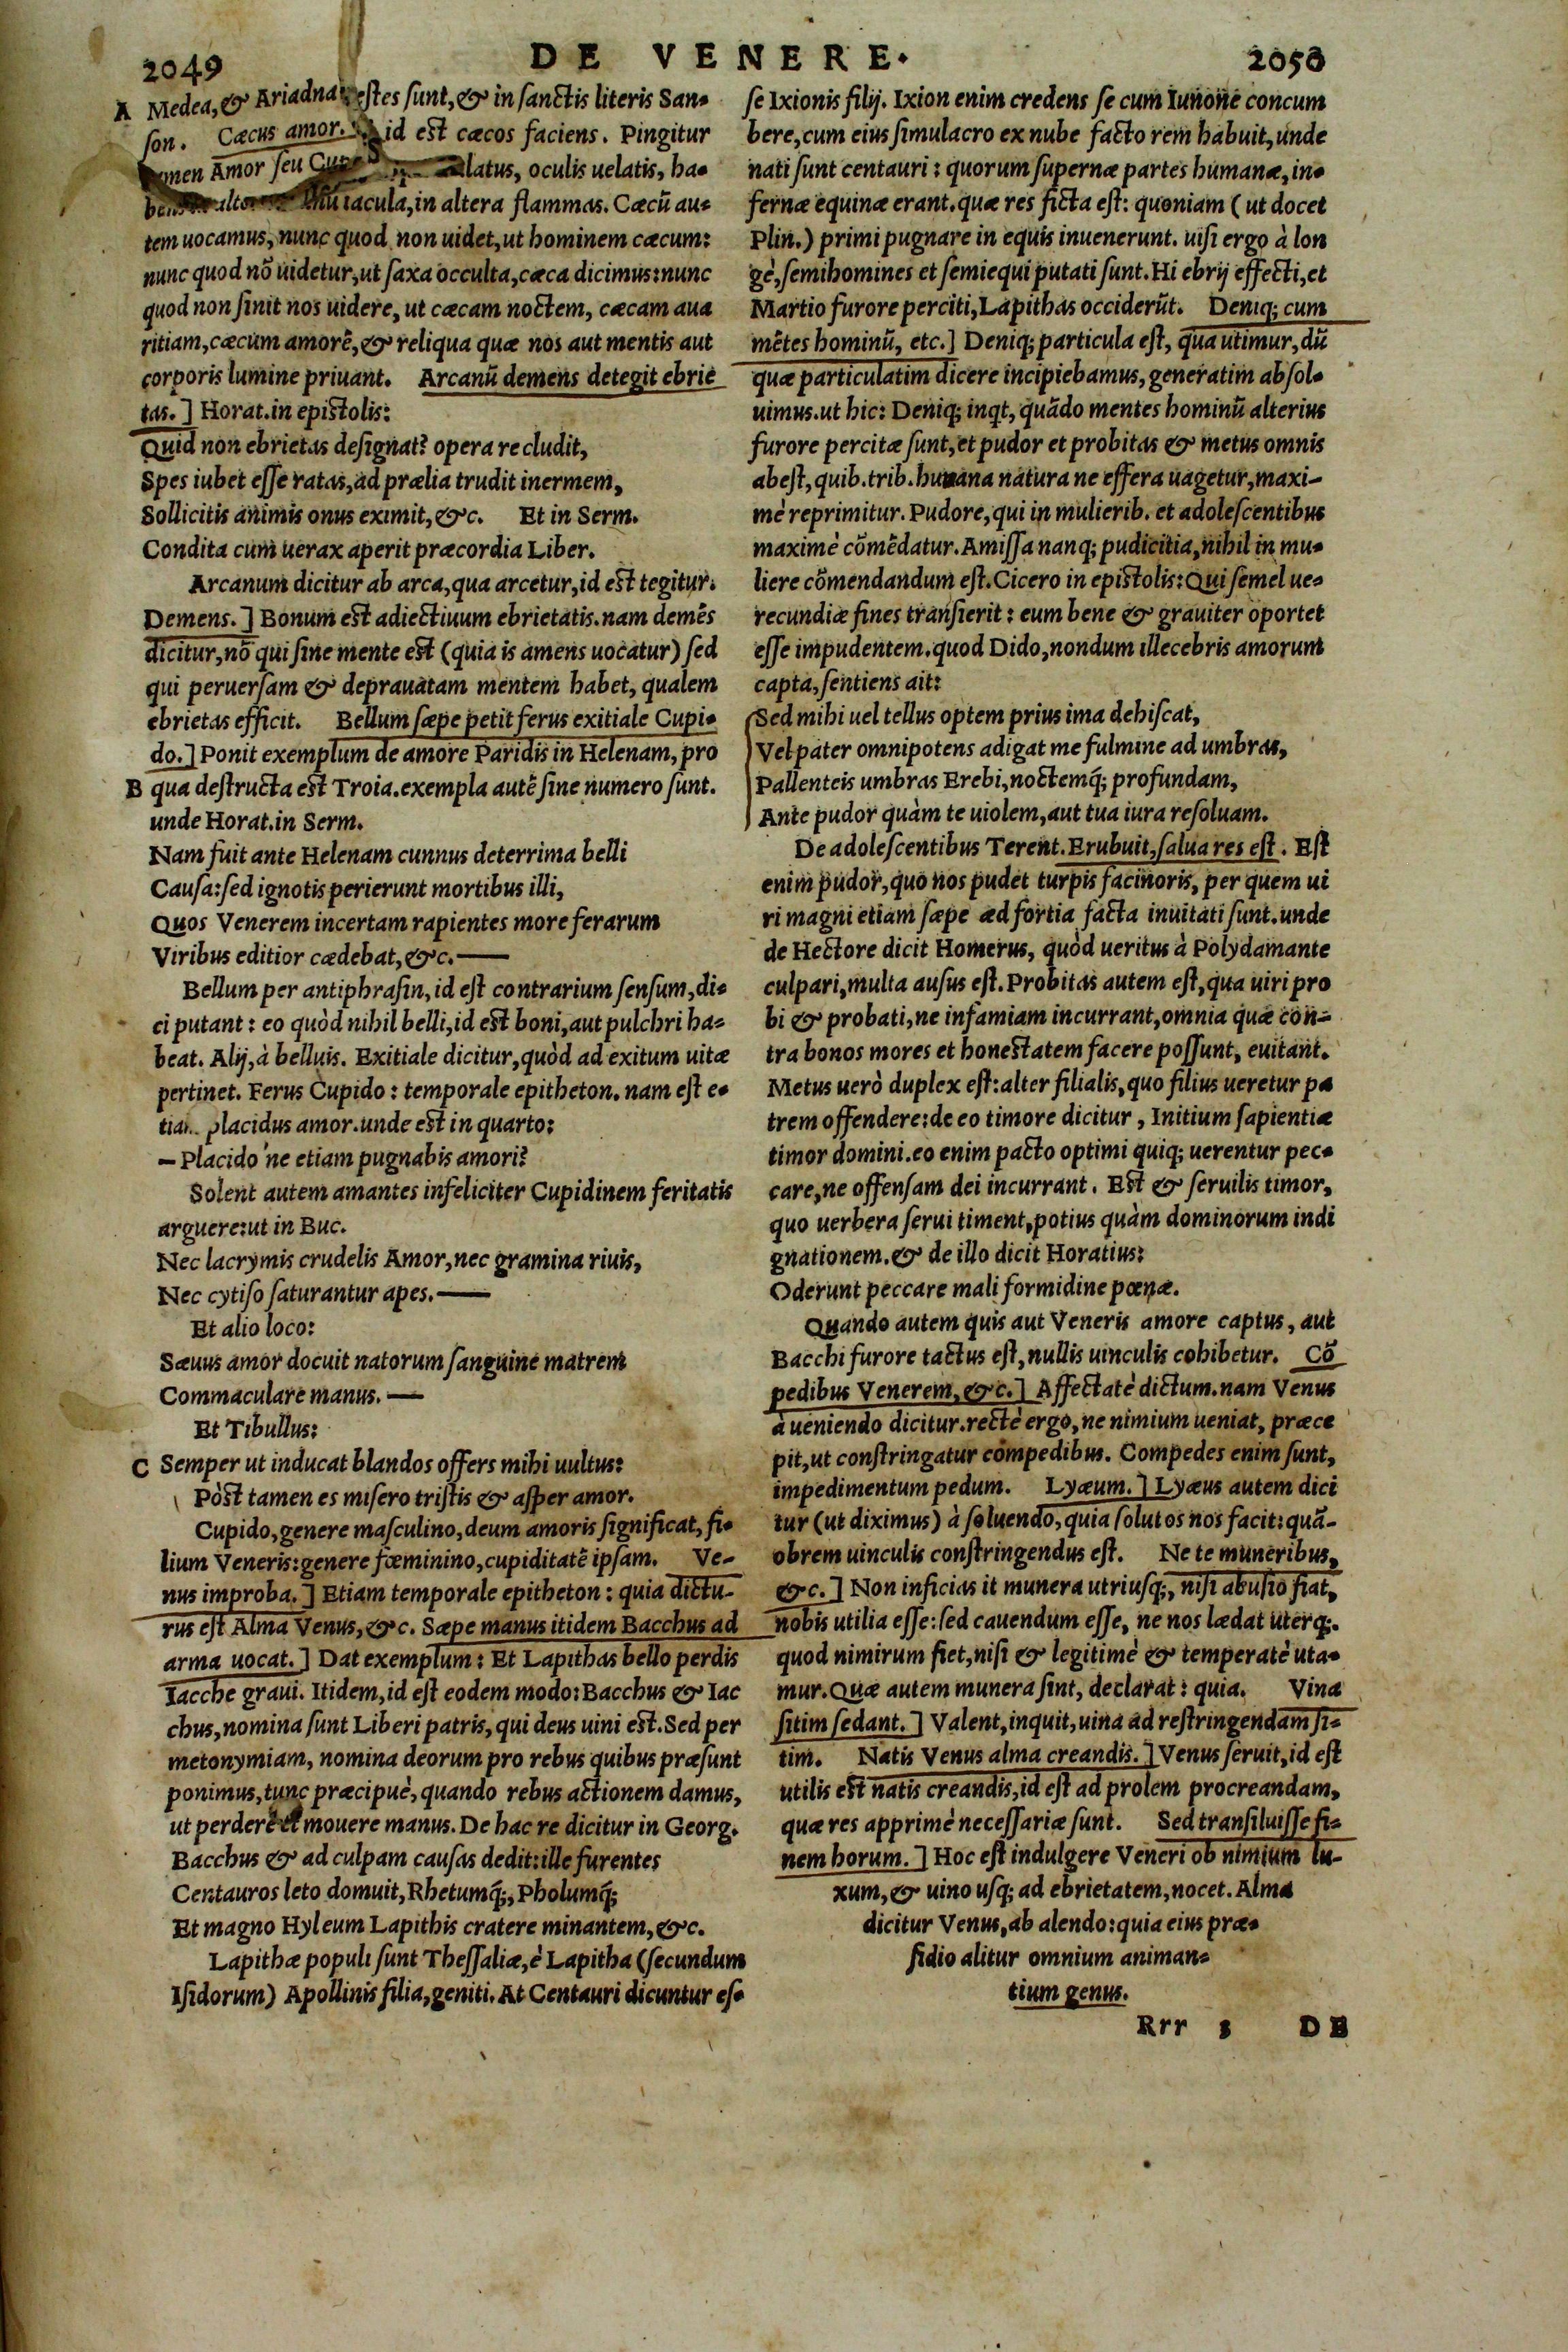 2049
DE VENERE.
2050
A Medea, & Ariadna testes sunt, & in sanctis literis San-
son. Cæcus amor.] id est cæcos faciens. Pingitur
Amor seu latus, oculis uelatis, ha-
iacula, in altera flammas. Cæcũ au-
tem uocamus, nunc quod non uidet, ut hominem cæcum:
nunc quod nõ uidetur, ut saxa occulta, cæca dicimus: nunc
quod non sinit nos uidere, ut cæcam noctem, cæcam aua
ritiam, cæcum amorẽ, & reliqua quæ nos aut mentis aut
corporis lumine priuant. Arcanũ demens detegit ebrie
tas.] Horat. in epistolis:
Quid non ebrietas designat? opera recludit,
Spes iubet esse ratas, ad prælia trudit inermem,
Sollicitis animis onus eximit, &c. Et in Serm.
Condita cum uerax aperit præcordia Liber.
Arcanum dicitur ab arca, qua arcetur, id est tegitur.
Demens.] Bonum est adiectiuum ebrietatis. nam demẽs
dicitur, nõ qui sine mente est (quia is amens uocatur) sed
qui peruersam & deprauatam mentem habet, qualem
ebrietas efficit. Bellum sæpe petit ferus exitiale Cupi-
do.] Ponit exemplum de amore Paridis in Helenam, pro
B qua destructa est Troia. exempla autẽ sine numero sunt.
unde Horat. in Serm.
Nam fuit ante Helenam cunnus deterrima belli
Causa: sed ignotis perierunt mortibus illi,
Quos Venerem incertam rapientes more ferarum
Viribus editior cædebat, &c.——
Bellum per antiphrasin, id est contrarium sensum, di-
ci putant: eo quòd nihil belli, id est boni, aut pulchri ha-
beat. Alij, à belluis. Exitiale dicitur, quòd ad exitum uitæ
pertinet. Ferus Cupido: temporale epitheton. nam est e-
tiam placidus amor. unde est in quarto:
—Placido ne etiam pugnabis amori?
Solent autem amantes infeliciter Cupidinem feritatis
arguere: ut in Buc.
Nec lacrymis crudelis Amor, nec gramina riuis,
Nec cytiso saturantur apes.——
Et alio loco:
Sæuus amor docuit natorum sanguine matrem
Commaculare manus.——
Et Tibullus:
C Semper ut inducat blandos offers mihi uultus:
Pòst tamen es misero tristis & asper amor.
Cupido, genere masculino, deum amoris significat, fi-
lium Veneris: genere fœminino, cupiditatẽ ipsam. Ve-
nus improba.] Etiam temporale epitheton: quia dictu-
rus est Alma Venus, &c. Sæpe manus itidem Bacchus ad
arma uocat.] Dat exemplum: Et Lapithas bello perdis
Iacche graui. Itidem, id est eodem modo: Bacchus & Iac
chus, nomina sunt Liberi patris, qui deus uini est. Sed per
metonymiam, nomina deorum pro rebus quibus præsunt
ponimus, tunc præcipuè, quando rebus actionem damus,
ut perdere et mouere manus. De hac re dicitur in Georg.
Bacchus & ad culpam causas dedit: ille furentes
Centauros leto domuit, Rhetumq́;, Pholumq́;
Et magno Hyleum Lapithis cratere minantem, &c.
Lapithæ populi sunt Thessaliæ, è Lapitha (secundum
Isidorum) Apollinis filia, geniti. At Centauri dicuntur es-
se Ixionis filij. Ixion enim credens se cum Iunone concum
bere, cum eius simulacro ex nube facto rem habuit, unde
nati sunt centauri: quorum supernæ partes humanæ, in-
fernæ equinæ erant. quæ res ficta est: quoniam (ut docet
Plin.) primi pugnare in equis inuenerunt. uisi ergo à lon
gè, semihomines et semiequi putati sunt. Hi ebrij effecti, et
Martio furore perciti, Lapithas occiderũt. Deniq; cum
mẽtes hominũ, etc.] Deniq; particula est, qua utimur, dũ
quæ particulatim dicere incipiebamus, generatim absol-
uimus. ut hic: Deniq; inqt, quãdo mentes hominũ alterius
furore percitæ sunt, et pudor et probitas & metus omnis
abest, quib. trib. humana natura ne effera uagetur, maxi-
mè reprimitur. Pudore, qui in mulierib. et adolescentibus
maximè cõmẽdatur. Amissa nanq; pudicitia, nihil in mu-
liere cõmendandum est. Cicero in epistolis: Qui semel ue-
recundiæ fines transierit: eum bene & grauiter oportet
esse impudentem. quod Dido, nondum illecebris amorum
capta, sentiens ait:
Sed mihi uel tellus optem prius ima dehiscat,
Vel pater omnipotens adigat me fulmine ad umbras,
Pallenteis umbras Erebi, noctemq́; profundam,
Ante pudor quàm te uiolem, aut tua iura resoluam.
De adolescentibus Terent. Erubuit, salua res est. Est
enim pudor, quo nos pudet turpis facinoris, per quem ui
ri magni etiam sæpe ad fortia facta inuitati sunt. unde
de Hectore dicit Homerus, quòd ueritus à Polydamante
culpari, multa ausus est. Probitas autem est, qua uiri pro
bi & probati, ne infamiam incurrant, omnia quæ con-
tra bonos mores et honestatem facere possunt, euitant.
Metus uerò duplex est: alter filialis, quo filius ueretur pa
trem offendere: de eo timore dicitur, Initium sapientiæ
timor domini. eo enim pacto optimi quiq; uerentur pec-
care, ne offensam dei incurrant. Est & seruilis timor,
quo uerbera serui timent, potius quàm dominorum indi
gnationem. & de illo dicit Horatius:
Oderunt peccare mali formidine pœnæ.
Quando autem quis aut Veneris amore captus, aut
Bacchi furore tactus est, nullis uinculis cohibetur. Cõ
pedibus Venerem, &c.] Affectatè dictum. nam Venus
à ueniendo dicitur. rectè ergo, ne nimium ueniat, præce
pit, ut constringatur compedibus. Compedes enim sunt,
impedimentum pedum. Lyæum.] Lyæus autem dici
tur (ut diximus) à soluendo, quia solutos nos facit: quã-
obrem uinculis constringendus est. Ne te muneribus,
&c.] Non inficias it munera utriusq;, nisi abusio fiat,
nobis utilia esse: sed cauendum esse, ne nos lædat uterq;.
quod nimirum fiet, nisi & legitimè & temperatè uta-
mur. Quæ autem munera sint, declarat: quia. Vina
sitim sedant.] Valent, inquit, uina ad restringendam si-
tim. Natis Venus alma creandis.] Venus seruit, id est
utilis est natis creandis, id est ad prolem procreandam,
quæ res apprimè necessariæ sunt. Sed transiluisse fi-
nem horum.] Hoc est indulgere Veneri ob nimium lu-
xum, & uino usq; ad ebrietatem, nocet. Alma
dicitur Venus, ab alendo: quia eius præ-
sidio alitur omnium animan-
tium genus.
Rrr DE